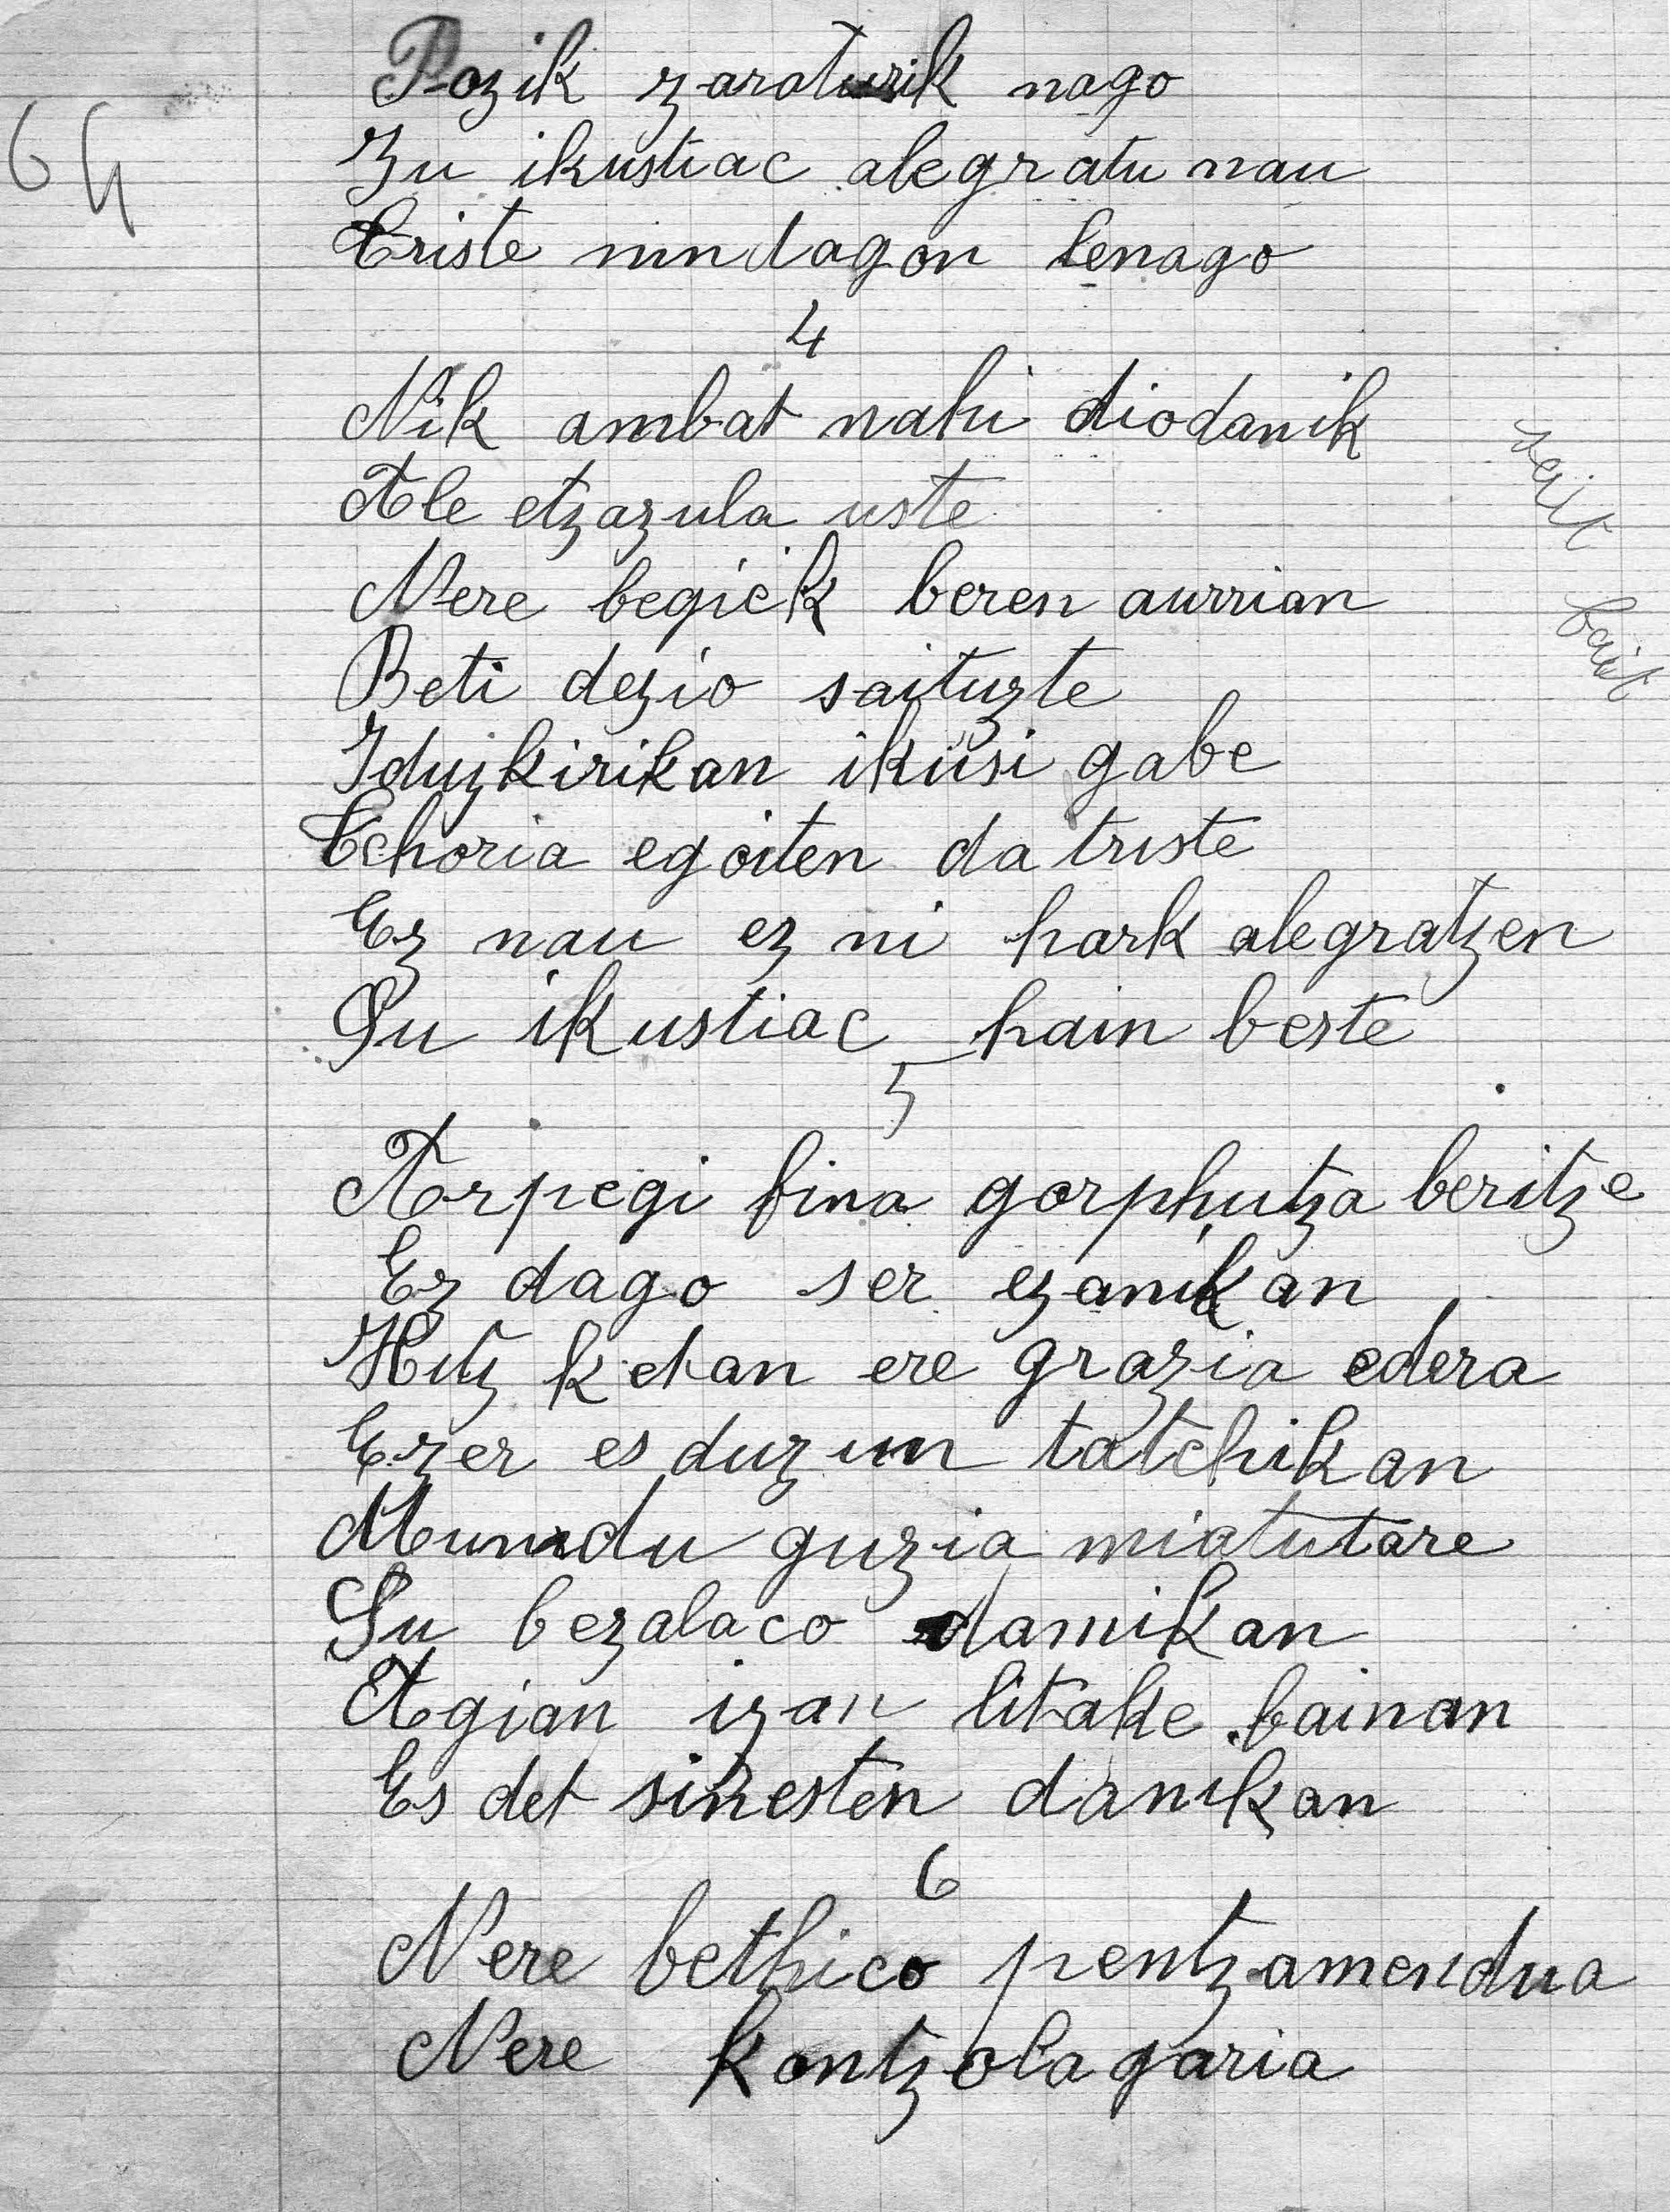 64
Pozik zaraturik nago
Zu ikustiac alegratu nau
Triste nindagon lenago
4
Nik ambat nahi diodanik
Ale etzazula uste
Nere begiek beren aurrian
Beti dezio saituzte
Iduzkirikan ikusi gabe
Tchoria egoiten da triste
Ez nau ez ni hark alegratzen
Su ikustiac hain beste
5
Arpegi fina gorphutza beritze
Ez dago ser ezanikan
Hitz ketan ere grazia edera
Ezer es duzun tatchikan
Mundu guzia miatutare
Su bezalaco damikan
Agian izan litake bainan
Es det sinesten danikan
6
Nere bethico pentzamendua
Nere kontzolagaria